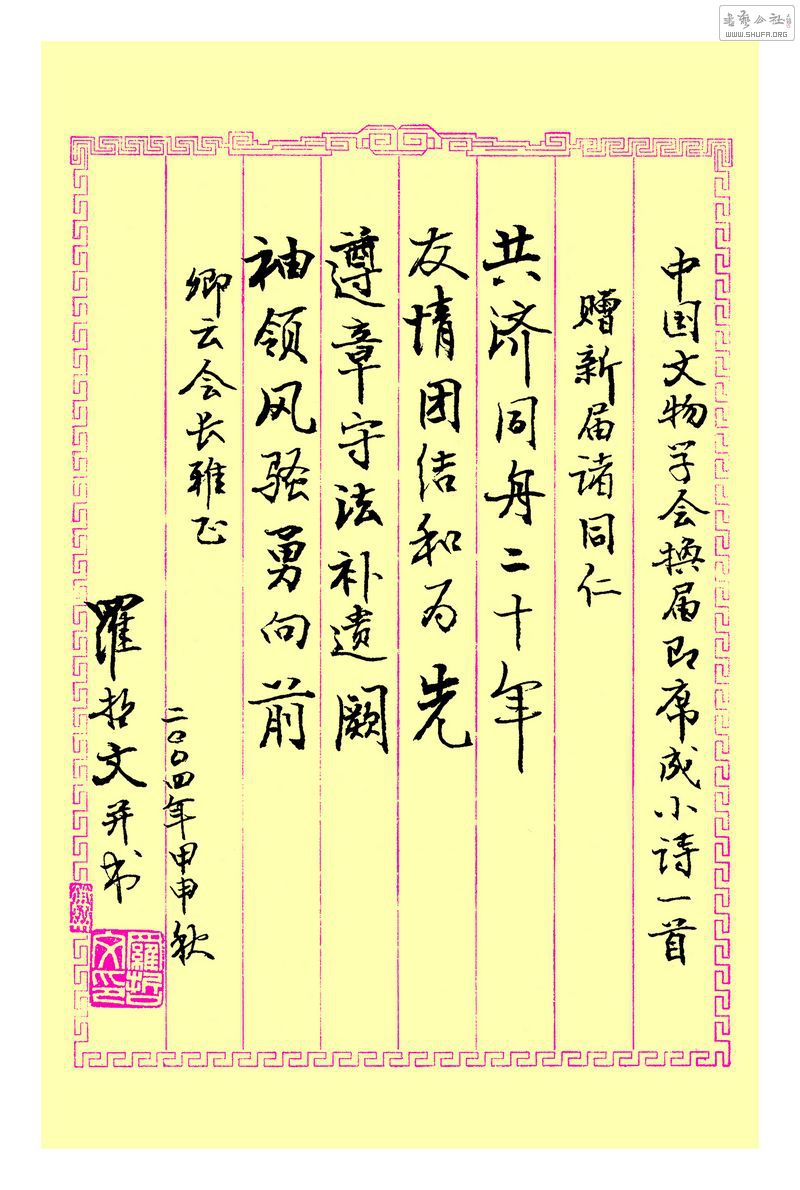 中国文物学会换届即席成小诗一首
赠新届诸同仁
共济同舟二十年
友情团结和为先
遵章守法补遗阙
袖领风骚勇向前
卿云会长雅正
二〇〇四年甲申秋
罗哲文并书
羅哲文印
書藝公社
WWW.SHUFA.ORG